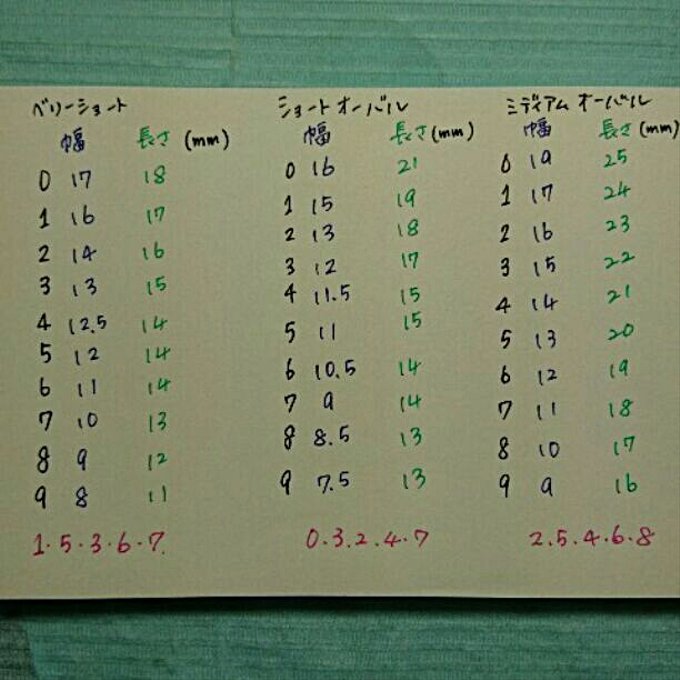 ベリーショート ショートオーバル ミディアムオーバル
幅 長さ (mm) 幅 長さ (mm) 幅 長さ (mm)
0 17 18 0 16 21 0 19 25
1 16 17 1 15 19 1 17 24
2 14 16 2 13 18 2 16 23
3 13 15 3 12 17 3 15 22
4 12.5 14 4 11.5 15 4 14 21
5 12 14 5 11 15 5 13 20
6 11 14 6 10.5 14 6 12 19
7 10 13 7 9 14 7 11 18
8 9 12 8 8.5 13 8 10 17
9 8 11 9 7.5 13 9 9 16
1・5・3・6・7. 0.3.2.4・7 2.5.4.6.8